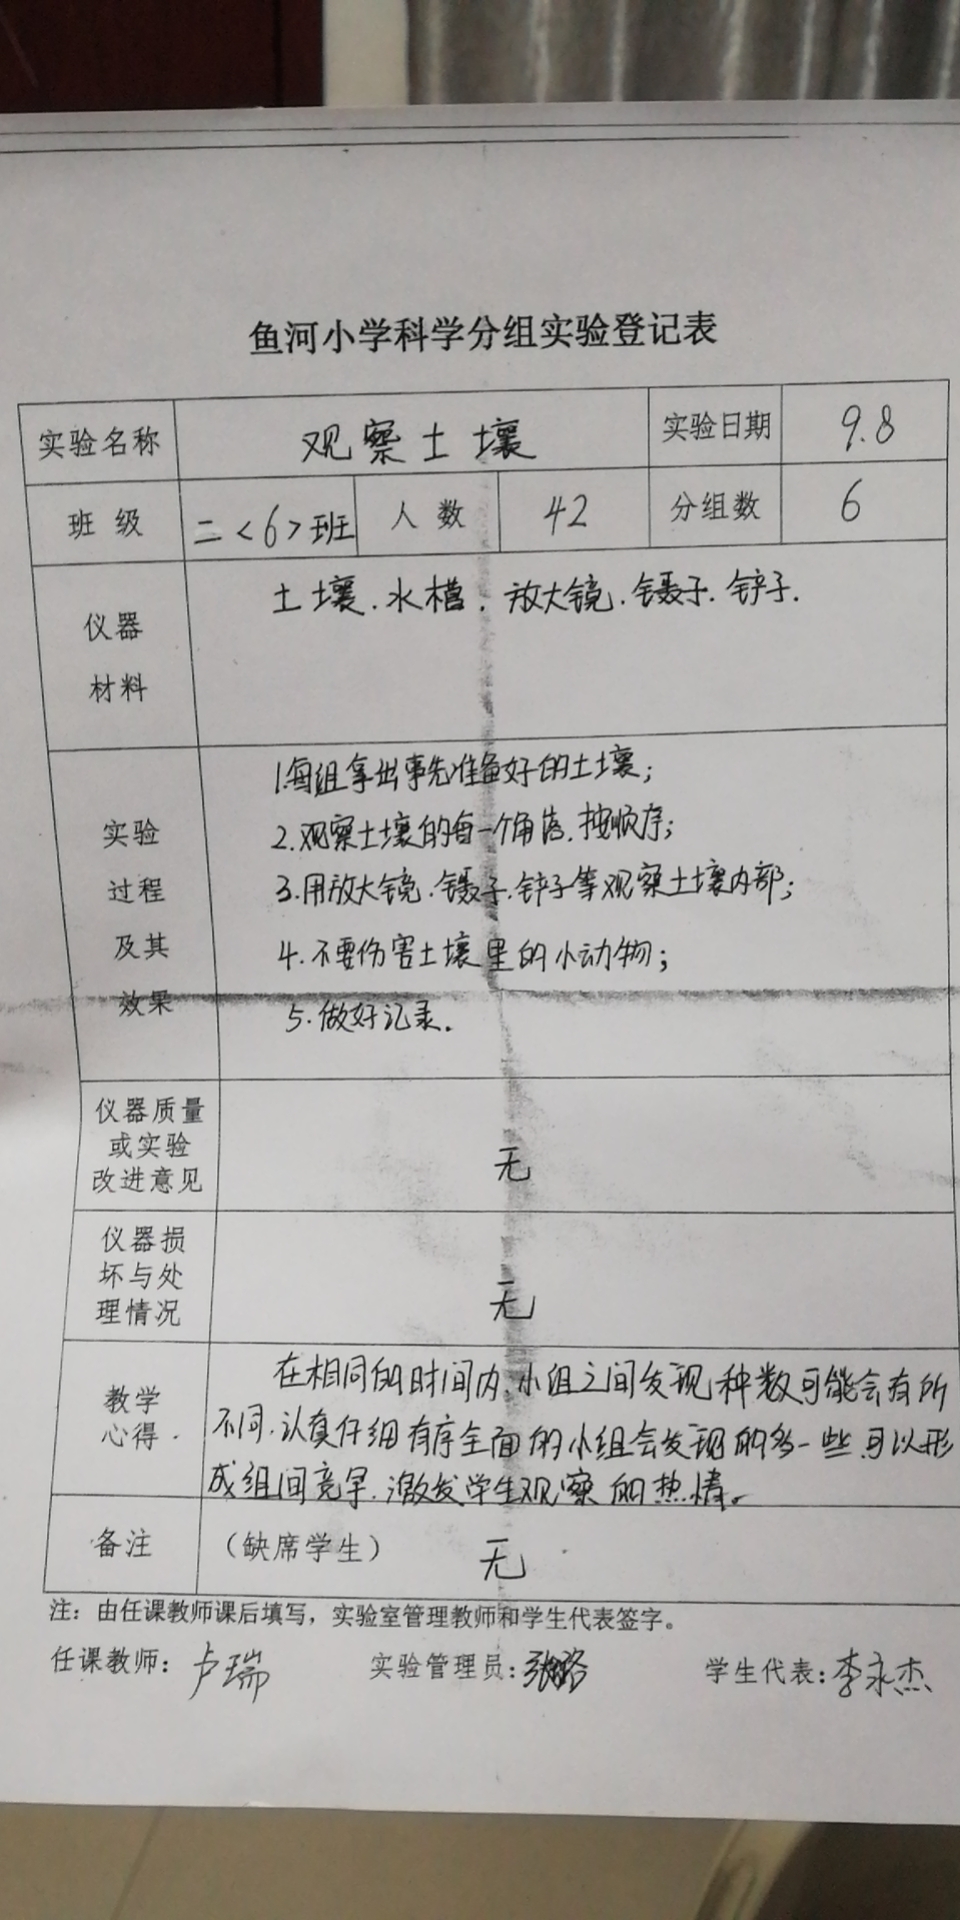 鱼河小学科学分组实验登记表
实验名称 观察土壤 实验日期 9.8
班级 二<6>班 人数 42 分组数 6
仪器
材料
土壤.水槽.放大镜.镊子.铲子.
实验
过程
及其
效果
1.每组拿出事先准备好的土壤;
2.观察土壤的每一个角落.按顺序;
3.用放大镜.镊子.铲子等观察土壤内部;
4.不要伤害土壤里的小动物;
5.做好记录.
仪器质量
或实验
改进意见
无
仪器损
坏与处
理情况
无
教学
心得
在相同的时间内,小组之间发现种数可能会有所
不同.认真仔细有序全面的小组会发现的多一些.可以形
成组间竞争.激发学生观察的热情。
备注 (缺席学生) 无
注：由任课教师课后填写，实验室管理教师和学生代表签字。
任课教师：卢瑞 实验管理员： 学生代表：李永杰